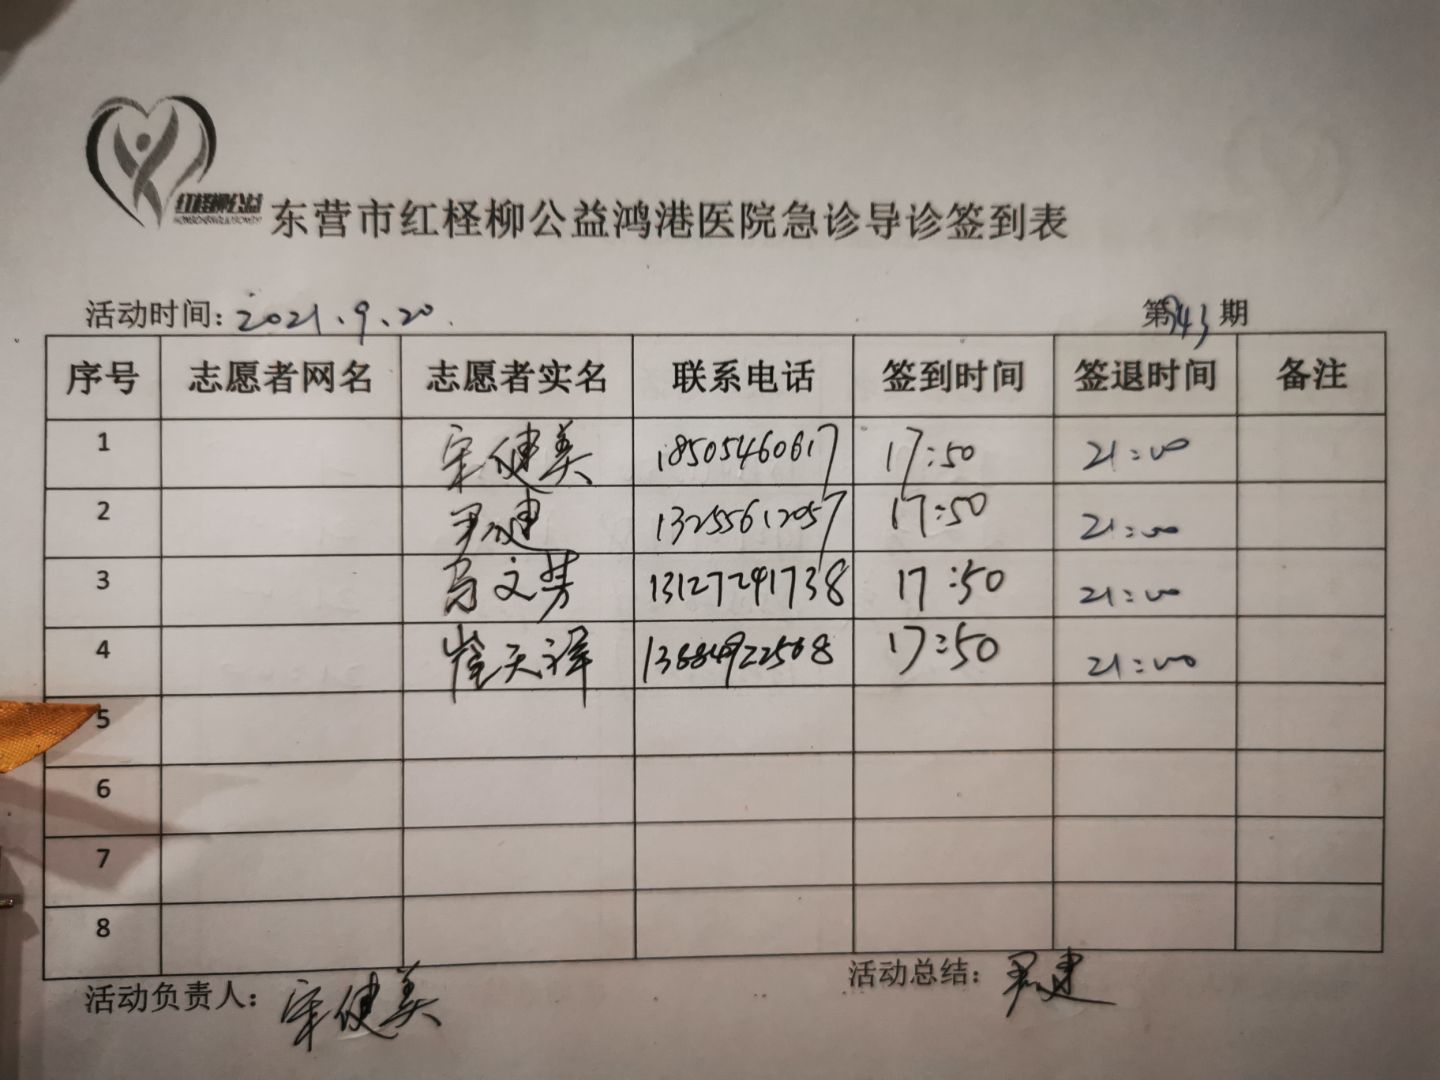 红柽柳公益
东营市红柽柳公益鸿港医院急诊导诊签到表
活动时间：2021.9.20 第943期
序号 志愿者网名 志愿者实名 联系电话 签到时间 签退时间 备注
1 宋健美 18505460617 17:50 21:00
2 尹健 13255612057 17:50 21:00
3 文芳 13127241738 17:50 21:00
4 崔天译 17:50 21:00
5
6
7
8
活动负责人：宋健美 活动总结：尹建